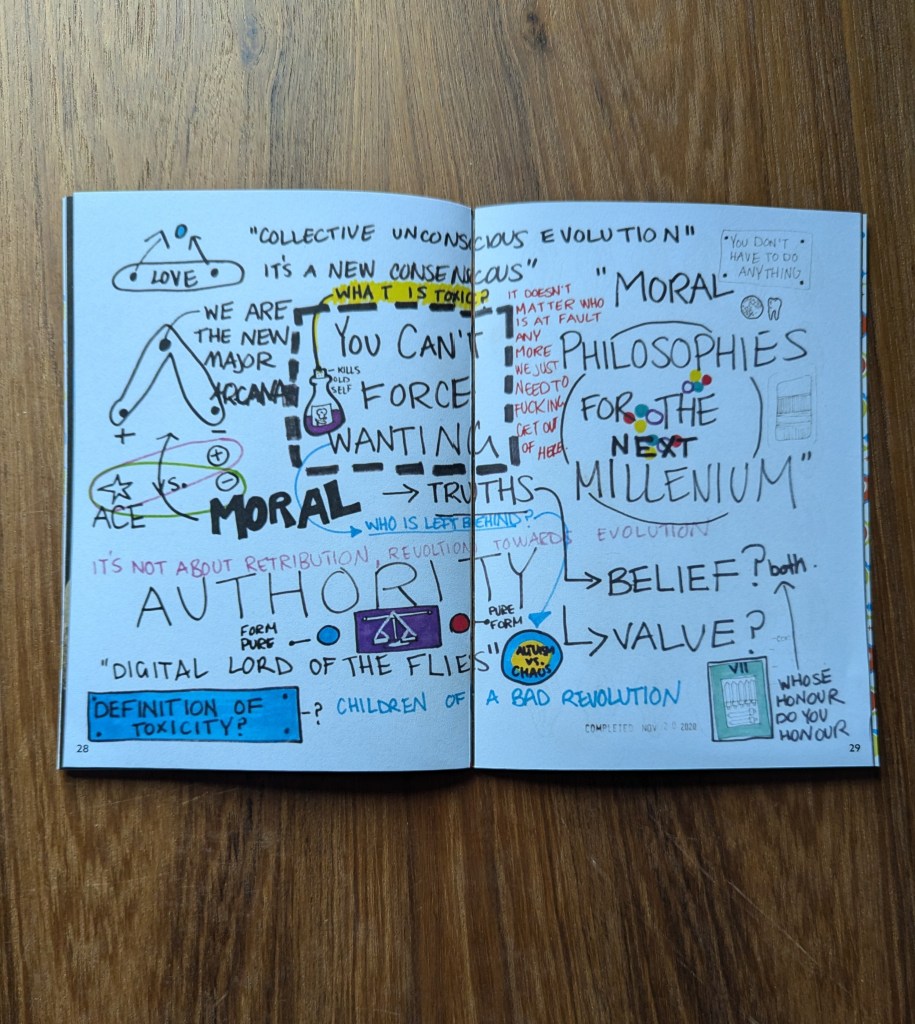 "COLLECTIVE UNCONSCIOUS EVOLUTION"
IT'S A NEW CONSENSCOUS"
LOVE
WE ARE
THE NEW
MAJOR
ARCANA
+ –
WHAT IS TOXIC?
YOU CAN'T
FORCE
WANTING
KILLS
OLD
SELF
IT DOESN'T
MATTER WHO
IS AT FAULT
ANY
MORE
WE JUST
NEED TO
FUCKING
GET OUT
OF HERE
"MORAL
PHILOSOPHIES
FOR THE
NEXT
MILLENIUM"
YOU DON'T
HAVE TO DO
ANYTHING
+
–
VS.
ACE
MORAL
→ TRUTHS
WHO IS LEFT BEHIND?
IT'S NOT ABOUT RETRIBUTION, REVOLTION TOWARDS EVOLUTION
AUTHORITY
BELIEF? both.
VALUE?
FORM
PURE
PURE
FORM
"DIGITAL LORD OF THE FLIES"
ALTUISM
VS.
CHAOS
DEFINITION OF
TOXICITY?
-? CHILDREN OF A BAD REVOLUTION
VII
WHOSE
HONOUR
DO YOU
HONOUR
COMPLETED NOV 2020
28
29